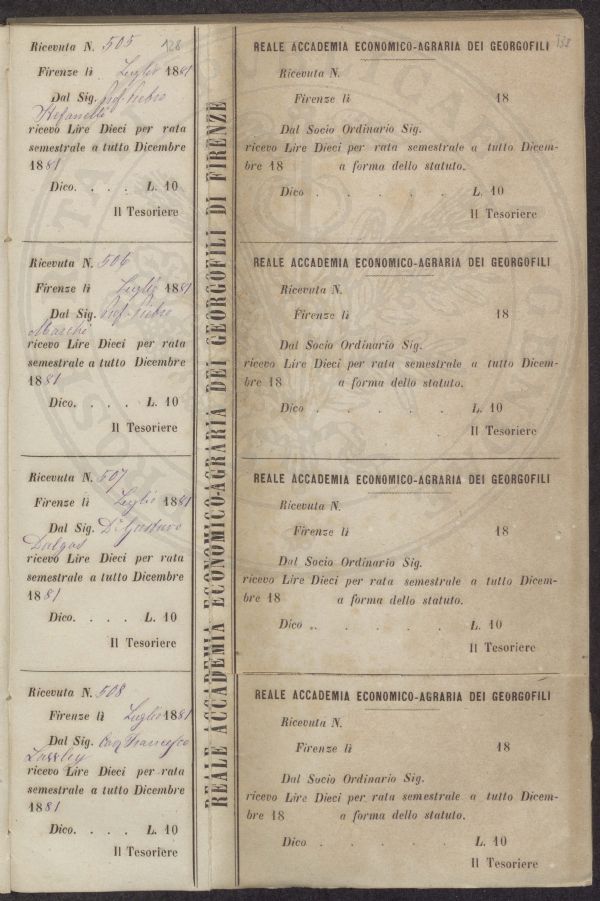 Ricevuta N. 505
Firenze lì Luglio 1881
Dal Sig. Prof. Pietro
Stefanelli
ricevo Lire Dieci per rata
semestrale a tutto Dicembre
1881
Dico. . . . L. 10
Il Tesoriere
Ricevuta N. 506
Firenze lì Luglio 1881
Dal Sig. Prof. Pietro
Marchi
ricevo Lire Dieci per rata
semestrale a tutto Dicembre
1881
Dico. . . . L. 10
Il Tesoriere
Ricevuta N. 507
Firenze lì Luglio 1881
Dal Sig. Dr. Gustavo
Dalgas
ricevo Lire Dieci per rata
semestrale a tutto Dicembre
1881
Dico. . . . L. 10
Il Tesoriere
Ricevuta N. 508
Firenze lì Luglio 1881
Dal Sig. Francesco
ricevo Lire Dieci per rata
semestrale a tutto Dicembre
1881
Dico. . . . L. 10
Il Tesoriere
REALE ACCADEMIA ECONOMICO-AGRARIA DEI GEORGOFILI DI FIRENZE
138
REALE ACCADEMIA ECONOMICO-AGRARIA DEI GEORGOFILI
Ricevuta N.
Firenze lì 18
Dal Socio Ordinario Sig.
ricevo Lire Dieci per rata semestrale a tutto Dicem-
bre 18 a forma dello statuto.
Dico . . . . . L. 10
Il Tesoriere
REALE ACCADEMIA ECONOMICO-AGRARIA DEI GEORGOFILI
Ricevuta N.
Firenze lì 18
Dal Socio Ordinario Sig.
ricevo Lire Dieci per rata semestrale a tutto Dicem-
bre 18 a forma dello statuto.
Dico . . . . . L. 10
Il Tesoriere
REALE ACCADEMIA ECONOMICO-AGRARIA DEI GEORGOFILI
Ricevuta N.
Firenze lì 18
Dal Socio Ordinario Sig.
ricevo Lire Dieci per rata semestrale a tutto Dicem-
bre 18 a forma dello statuto.
Dico . . . . . L. 10
Il Tesoriere
REALE ACCADEMIA ECONOMICO-AGRARIA DEI GEORGOFILI
Ricevuta N.
Firenze lì 18
Dal Socio Ordinario Sig.
ricevo Lire Dieci per rata semestrale a tutto Dicem-
bre 18 a forma dello statuto.
Dico . . . . . L. 10
Il Tesoriere